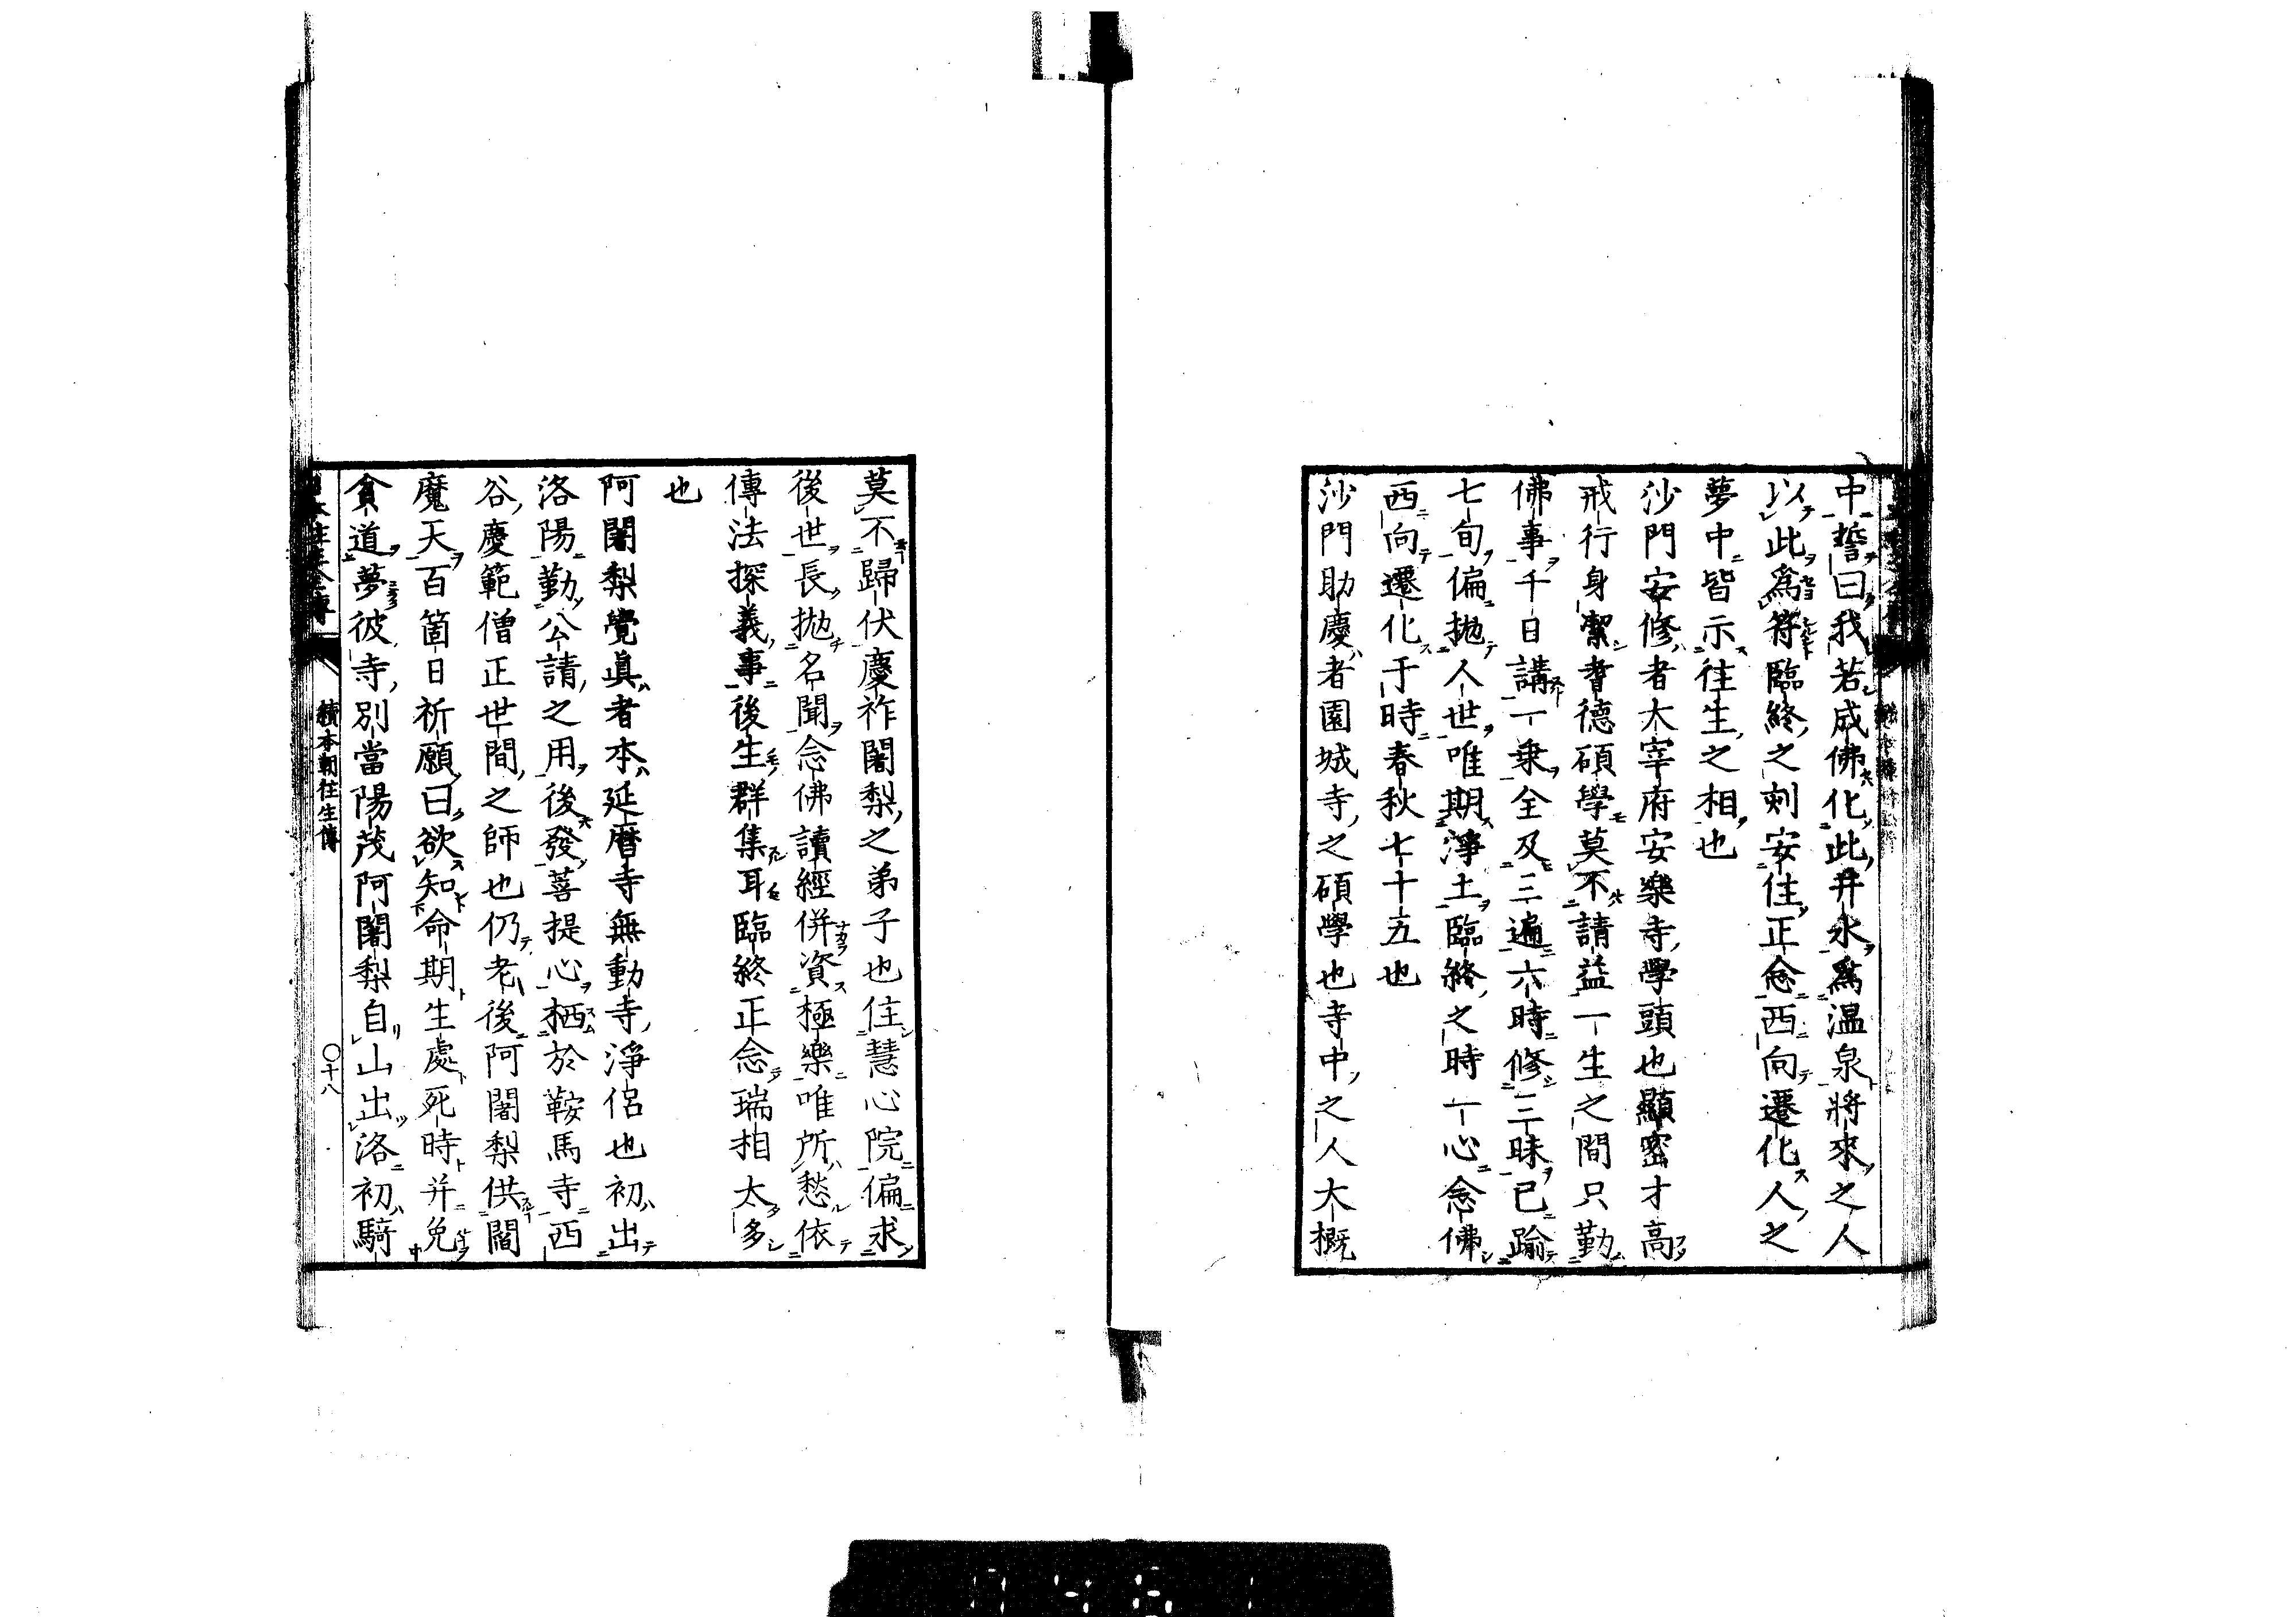 中誓曰我若成佛化此井水爲温泉將來之人
以此爲符臨終之刻安住正念西向遷化人之
夢中皆示往生之相也
沙門安修者大宰府安樂寺學頭也顯密才高
戒行身潔耆德碩學莫不請益一生之間只勤
佛事千日講一乘全及三遍六時修三昧已踰
七旬偏拋人世唯期淨土臨終之時一心念佛
西向遷化于時春秋七十五也
沙門助慶者園城寺之碩學也寺中之人大概
莫不歸伏慶祚闍梨之弟子也住慧心院偏求
後世長拋名聞念佛讀經併資極樂唯所愁依
傳法探義事後生群集耳臨終正念瑞相太多
也
阿闍梨覺眞者本延曆寺無動寺淨侶也初出
洛陽勤公請之用後發菩提心栖於鞍馬寺西
谷慶範僧正世間之師也仍老後阿闍梨供閻
魔天百箇日祈願曰欲知命期生處死時并免
貪道夢彼寺別當陽茂阿闍梨自山出洛初騎
續本朝往生傳
〇十八